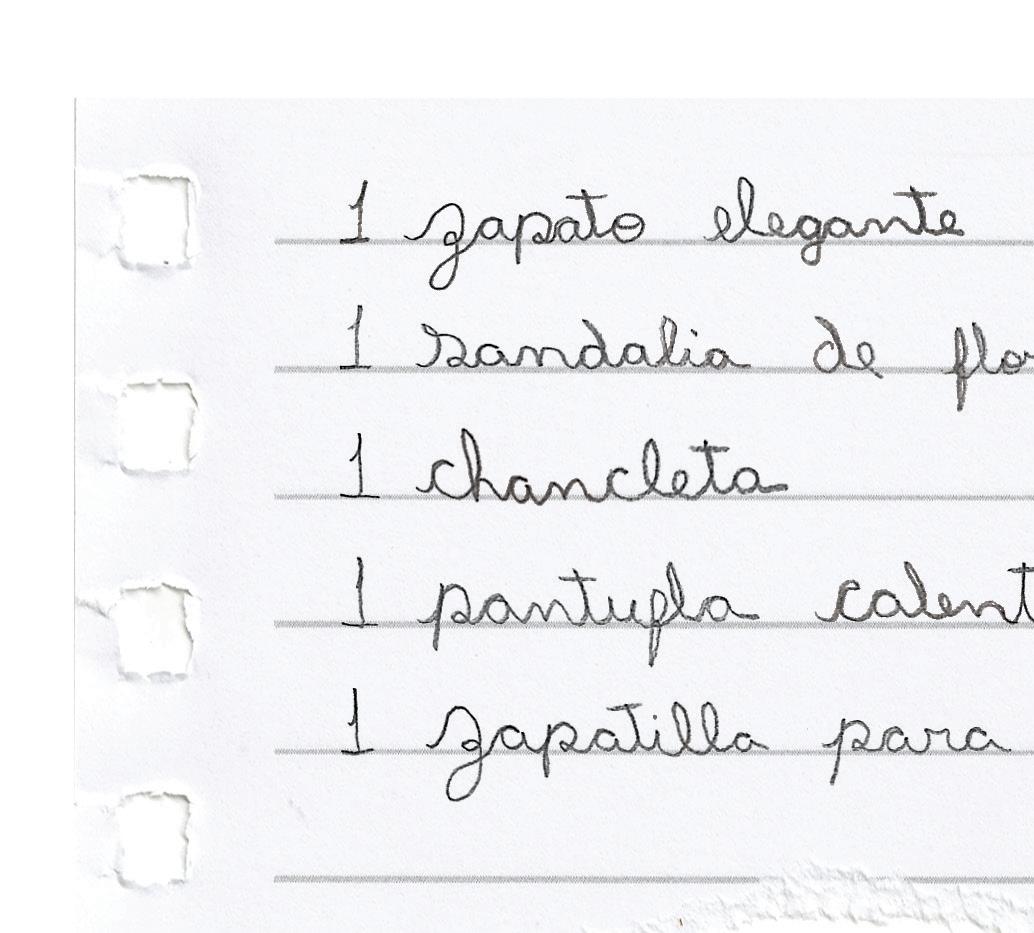 1 zapato elegante
1 sandalia de flo
1 chancleta
1 pantufla calent
1 zapatilla para